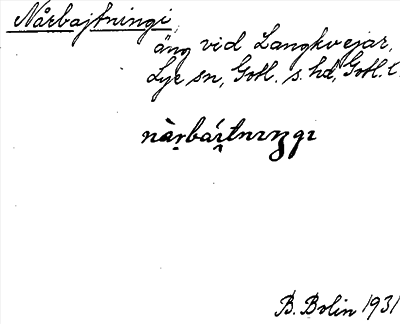 Nårbajtningi
äng vid Langkvejar,
Lye sn, Gotl. s. hd, Gotl. l.
nàrbái̯tnıŋgı
B. Bolin 1931